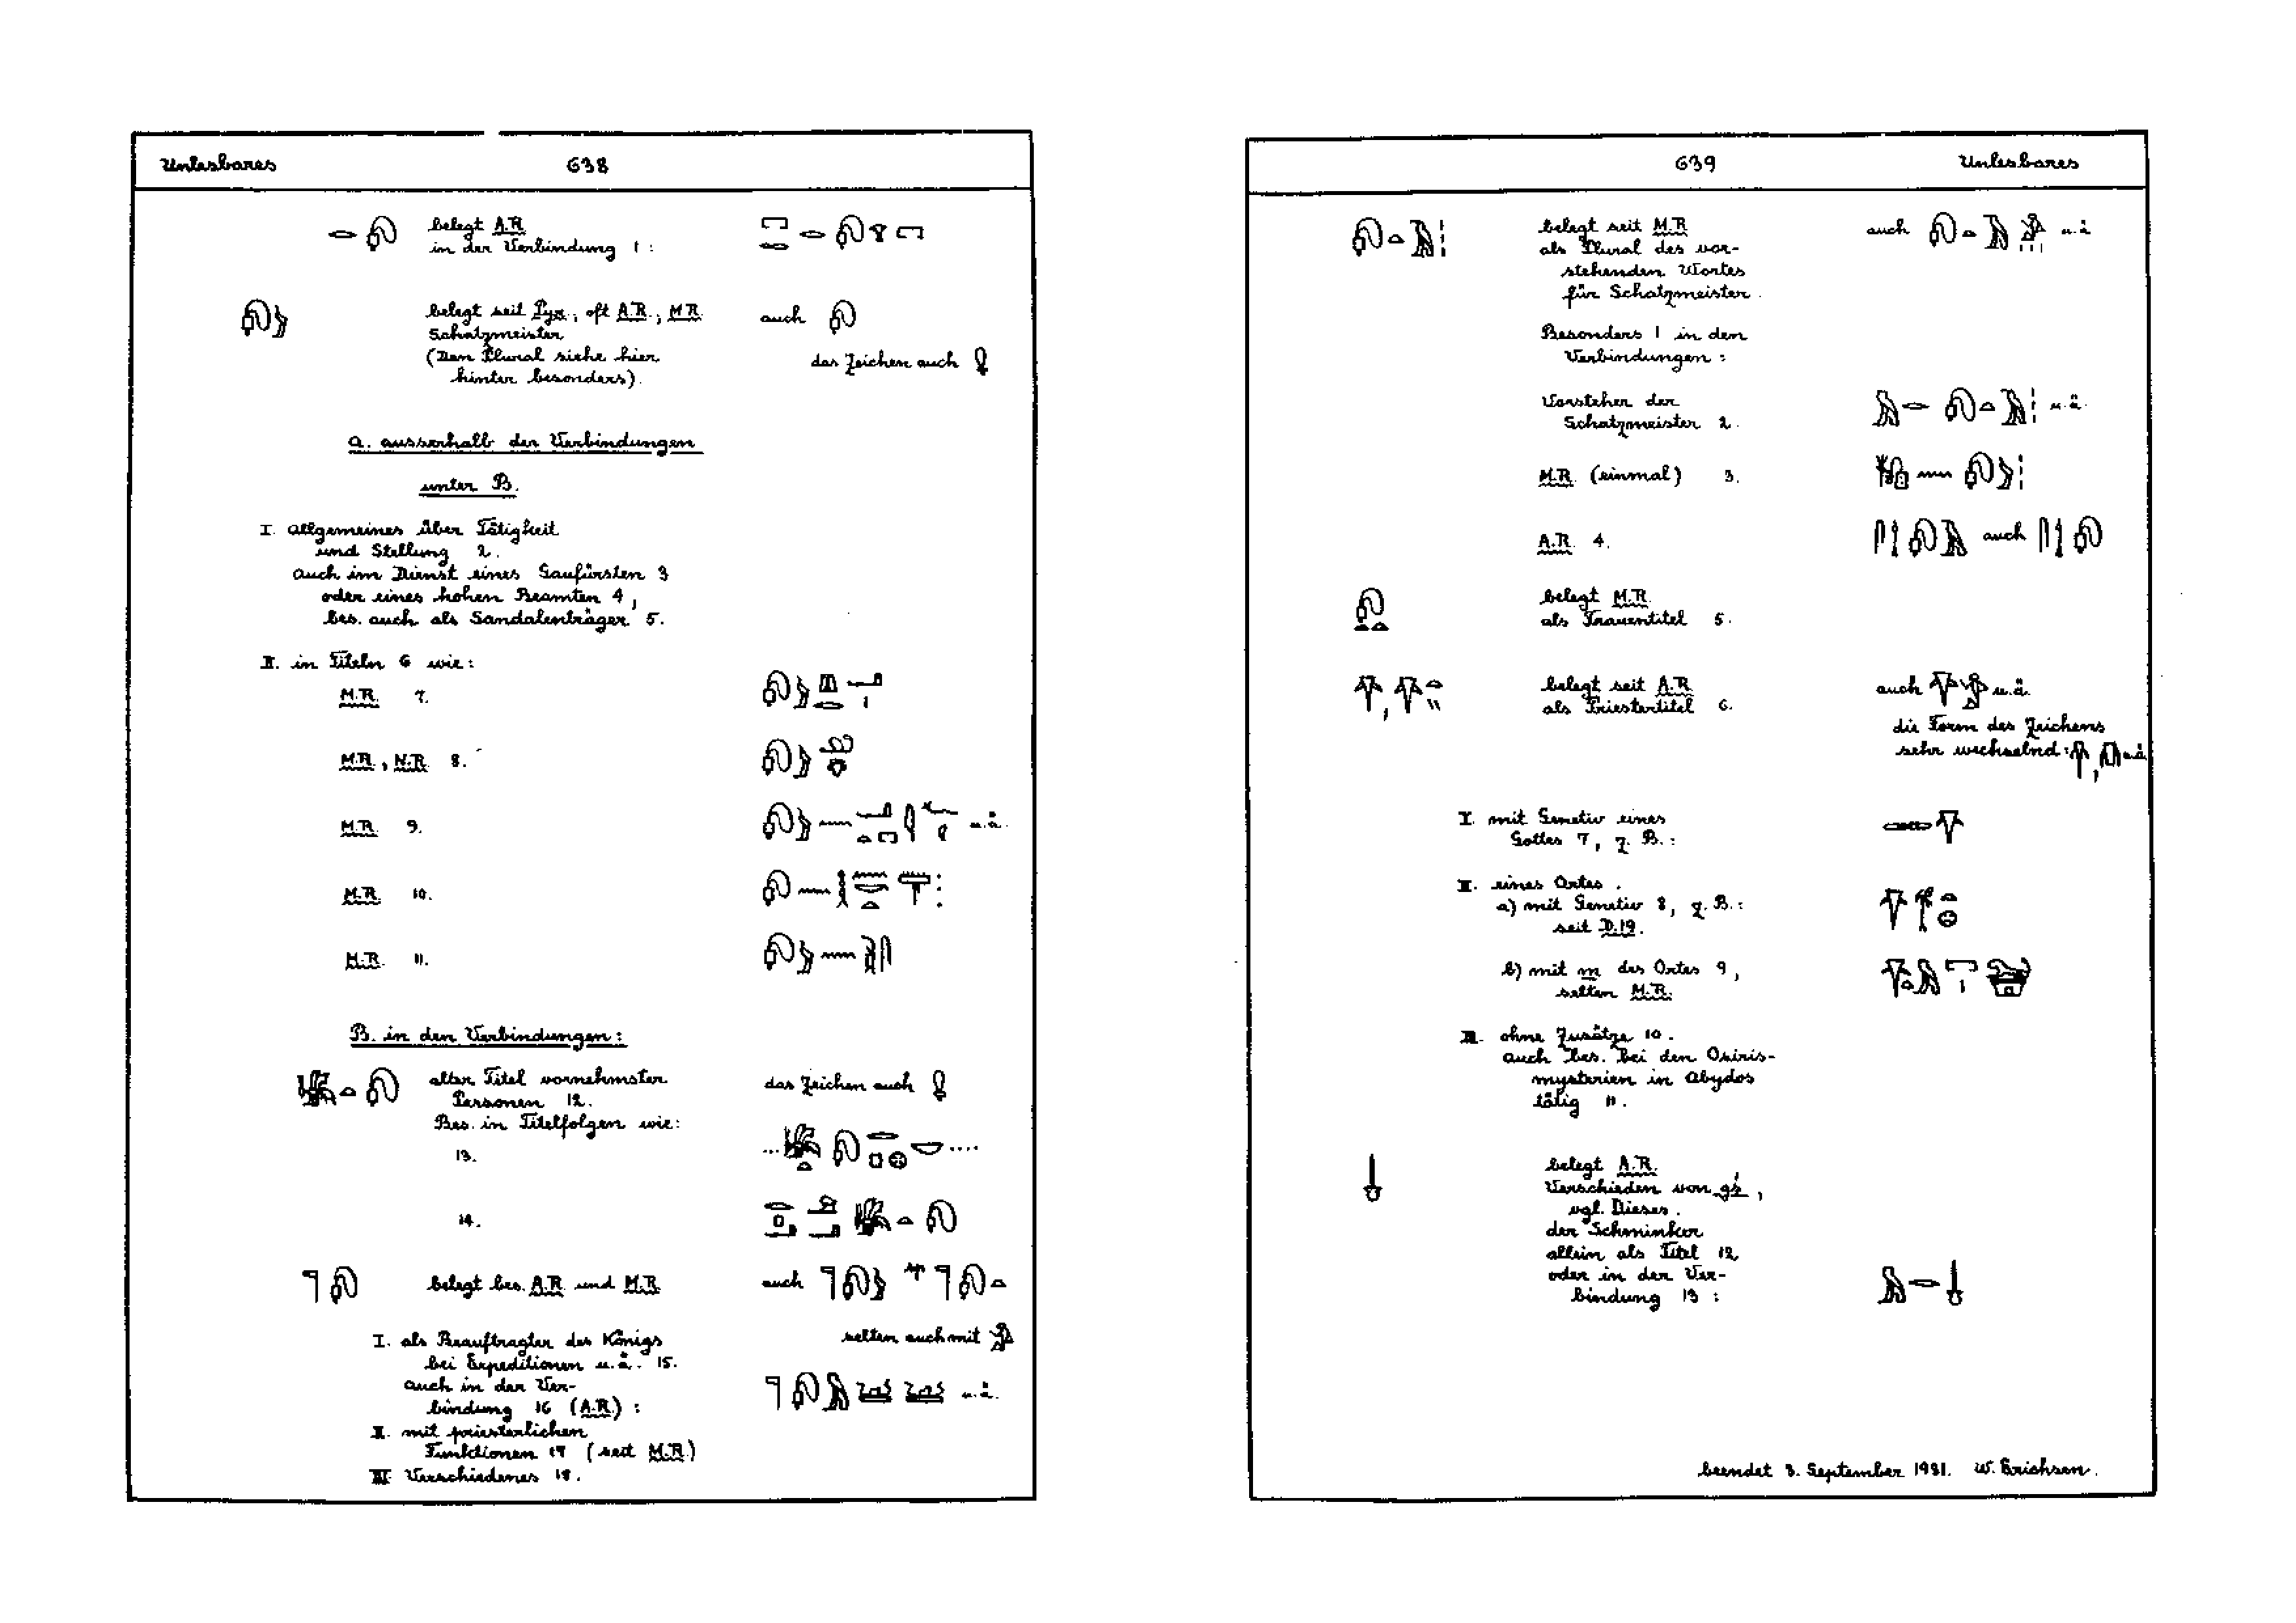 Unlesbares 638
belegt A.R.
in der Verbindung 1 :
belegt seit Pyr., oft A.R., M.R. auch
Schatzmeister
(Den Plural siehe hier das Zeichen auch
hinter besonders).
A. ausserhalb der Verbindungen
unter B.
I. Allgemeines über Tätigkeit
und Stellung 2.
auch im Dienst eines Gaufürsten 3
oder eines hohen Beamten 4,
bes. auch als Sandalenträger 5.
II. in Titeln 6 wie:
M.R. 7.
M.R., N.R. 8.
M.R. 9. u.ä.
M.R. 10.
M.R. 11.
B. in den Verbindungen:
alter Titel vornehmster das Zeichen auch
Personen 12.
Bes. in Titelfolgen wie:
13.
14.
belegt bes. A.R. und M.R. auch
I. als Beauftragter des Königs selten auch mit
bei Expeditionen u.ä. 15.
auch in der Ver-
bindung 16 (A.R.) : u.ä.
II. mit priesterlichen
Funktionen 17 (seit M.R.)
III. Verschiedenes 18.
639 Unlesbares
belegt seit M.R. auch u.ä
als Plural des vor-
stehenden Wortes
für Schatzmeister.
Besonders 1 in den
Verbindungen :
Vorsteher der u.ä.
Schatzmeister 2.
M.R. (einmal) 3.
A.R. 4. auch
belegt M.R.
als Frauentitel 5.
belegt seit A.R. auch u.ä.
als Priestertitel 6.
die Form des Zeichens
sehr wechselnd: , u.ä.
I. mit Genetiv eines
Gottes 7, z. B.:
II. eines Ortes.
a) mit Genetiv 8, z. B.:
seit D.19.
b) mit m des Ortes 9,
selten M.R.
III. ohne Zusätze 10.
auch bes. bei den Osiris-
mysterien in Abydos
tätig 11.
belegt A.R.
Verschieden von gś,
vgl. Dieses.
der Schminker
allein als Titel 12
oder in der Ver-
bindung 13 :
beendet 3. September 1931. W. Erichsen.